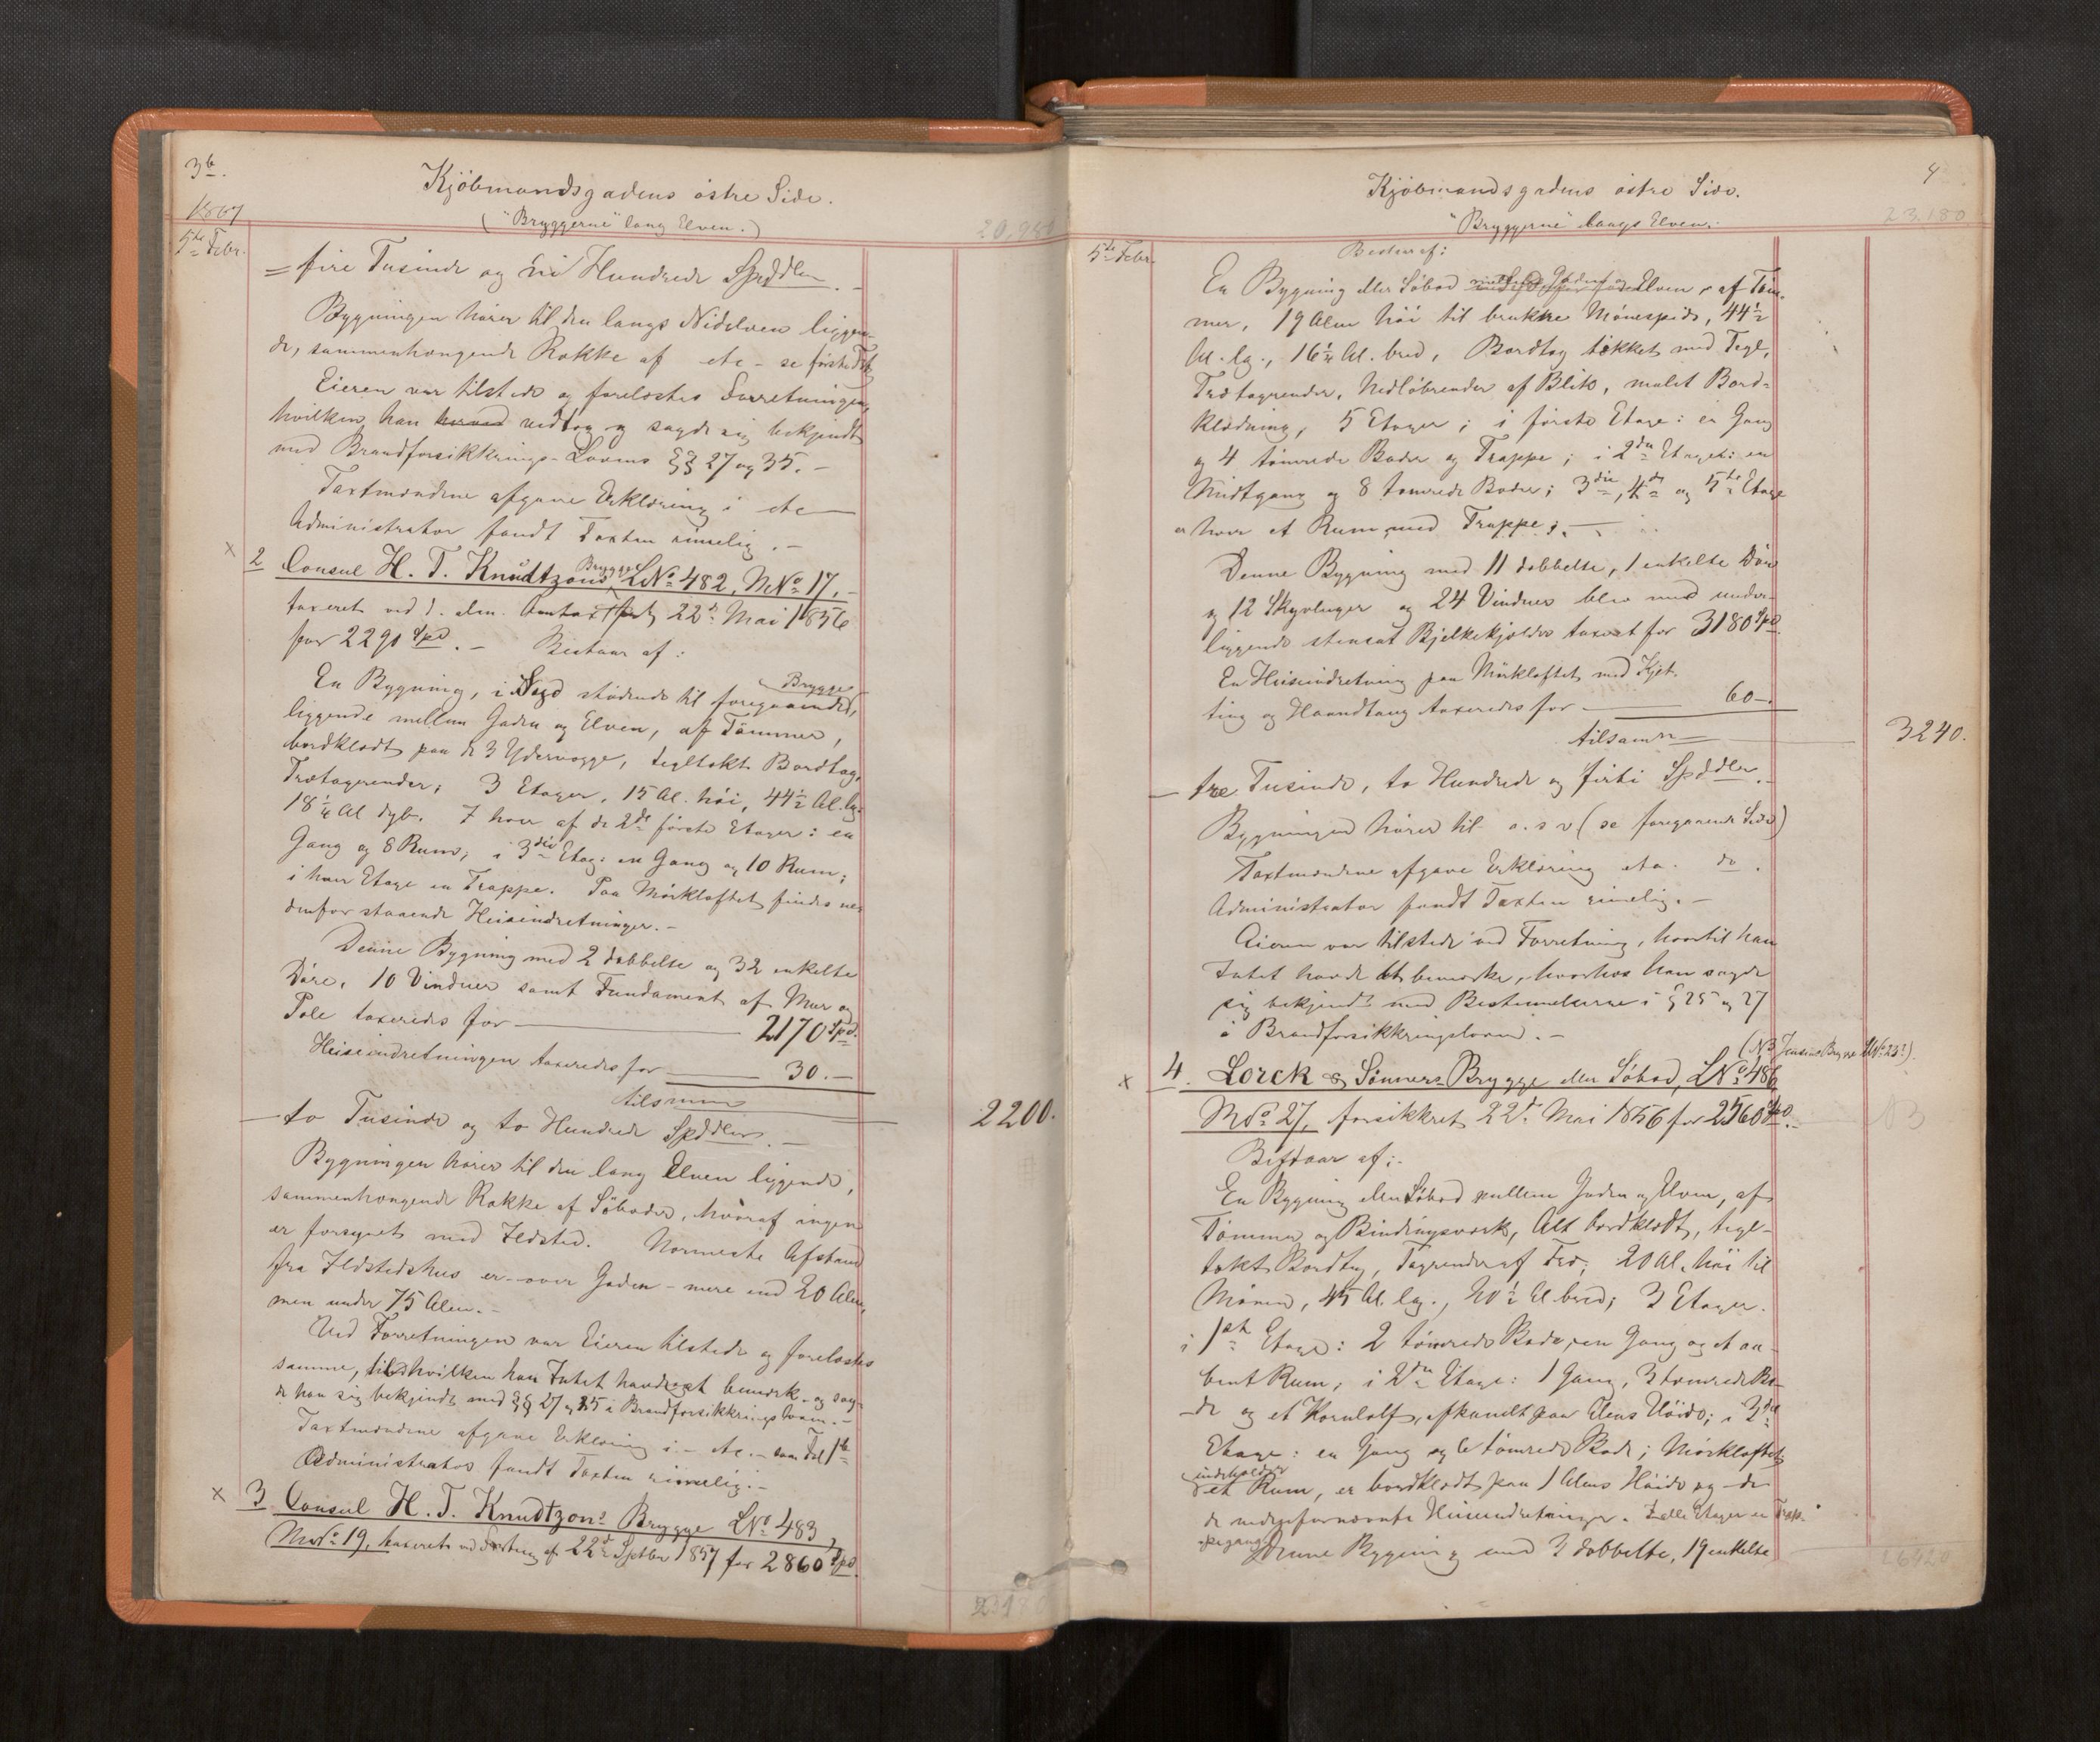 3b.
Kjöbmandsgadens östre Side.
("Bryggerne" lang Elven.)
1867
20,980
5te Febr.
= fire Tusinde og ni Hundrede Spddlr. -
Bygningen hörer til den langs Nidelven liggen-
de, sammenhængende Række af etc - se förste
Eieren var tilstede og forelæstes Forretningen,
hvilken han herved vedtog og sagde sig bekjendt
med Brandforsikkrings-Lovens §§ 27 og 35. -
Taxtmændene afgave Erklæring i etc
Administrator fandt Taxten rimelig. -
x 2 Consul H. T. Knudtzons Brygge LNo 482, MNo 17. -
taxeret ved d. alm. 22de Mai 1856
for 2290 Spd. - Bestaar af:
En Bygning, i Syd stödende til foregaaende Brygge,
liggende mellem Gaden og Elven, af Tömmer,
bordklædt paa de 3 Ydervægge, tegltækt Bordtag,
Trætagrender, 3 Etager, 15 Al. höi, 44½ Al. lg.
18¼ Al dyb. I hver af de 2de förste Etager: en
Gang og 8 Rum; i 3die Etag: en Gang og 10 Rum;
i hver Etage en Trappe. Paa Mörkloftet findes ne-
denfor staaende Heiseindretninger. -
Denne Bygning med 2 dobbelte og 32 enkelte
Döre, 10 Vinduer samt Fundament af Mur og
Pæle taxeredes for — 2170 Spd.
Heiseindretningen taxeredes for — 30. -
tilsammen
2200.
— to Tusinde og to Hundrede Spddlr. -
Bygningen hörer til den lang Elven liggende,
sammenhængende Række af Söboder, hvoraf ingen
er forsynet med Ildsted. Nærmeste Afstand
fra Ildstedshus er - over Gaden - mere end 20 Alen,
men under 75 Alen. -
Ved Forretningen var Eieren tilstede og forelæstes
samme, til hvilken han Intet havde at bemærk. og sag-
de han sig bekjendt med §§ 27 og 35 i Brandforsikkrings loven. -
Taxtmændene afgave Erklæring i - etc. - som Fol 1b
Administrator fandt Taxten rimelig. -
x 3 Consul H. T. Knudtzons Brygge LNo 483,
MNo 19, taxeret ved af 22de Septbr 1857 for 2860 Spd.
2318
4
Kjöbmandsgadens östre Side.
"Bryggerne" langs Elven.
23.180
5te Febr.
Bestaar af:
En Bygning eller Söbod mellem Gaden og Elven, af Töm-
mer, 19 Alen höi til brukkne Mönespids, 44½
Al. lg., 16¼ Al. bred, Bordtag tækket med Tegl,
Trætagrender, Nedlöbrender af Blik, malet Bord-
klædning, 5 Etager; i förste Etage: en Gang
og 4 tömrede Boder og Trappe; i 2den Etage: en
Midtgang og 8 tömrede Boder; 3die, 4de og 5te Etage
er hver et Rum med Trappe;. —
Denne Bygning med 11 dobbelte, 1 enkelte Dör
og 12 Skyvluger og 24 Vinduer blev med under-
liggende stensat Bjelkekjelder taxeret for 3180 Spd.
En Heiseindretning paa Mörkloftet med Kjet-
ting og Haandtaug taxeredes for — 60 -.
tilsamn — 3240.
— tre Tusinde, to Hundrede og firti Spddlr. -
Bygningen hörer til o. s v (se foregaaende Side)
Taxtmændene afgave Erklæring etc. do.
Administrator fandt Taxten rimelig. -
Eieren var tilstede ved Forretning, hvortil han
Intet havde at bemærke, hvorhos han sagde
sig bekjendt med Bestemmelserne i § 25 og 27
i Brandforsikkringsloven. -
(NB Jensens Brygge MNo 23?).
x 4. Lorck & Sönners Brygge eller Söbod, LNo 486
MNo 27, forsikkret 22de Mai 1856 for 2560 Spd. -
NB
Bestaar af;-
En Bygning eller Söbod mellem Gaden og Elven, af
Tömmer og Bindingsværk, Alt bordklædt, tegl-
tækt Bordtag, Tagrender af Træ, 20 Al. höi til
Mönen, 45 Al. lg., 20½ Al. bred; 3 Etager.
i 1ste Etage: 2 tömrede Boder, en Gang og et aa-
bent Rum; i 2den Etage: 1 Gang, 3 tömrede Bo-
der og et Kornloft, afpanelt paa Alens Höide; i 3die
Etage: en Gang og 6 tömrede Boder; Mörkloftet
indeholder et Rum, er bordklædt paa 1 Alens Höide og de
de nedenfornævnte Heiseindretninger. I alle Etager er Trap-
pegang.
Denne Bygning med 3 dobbelte, 19 enkelte
26420